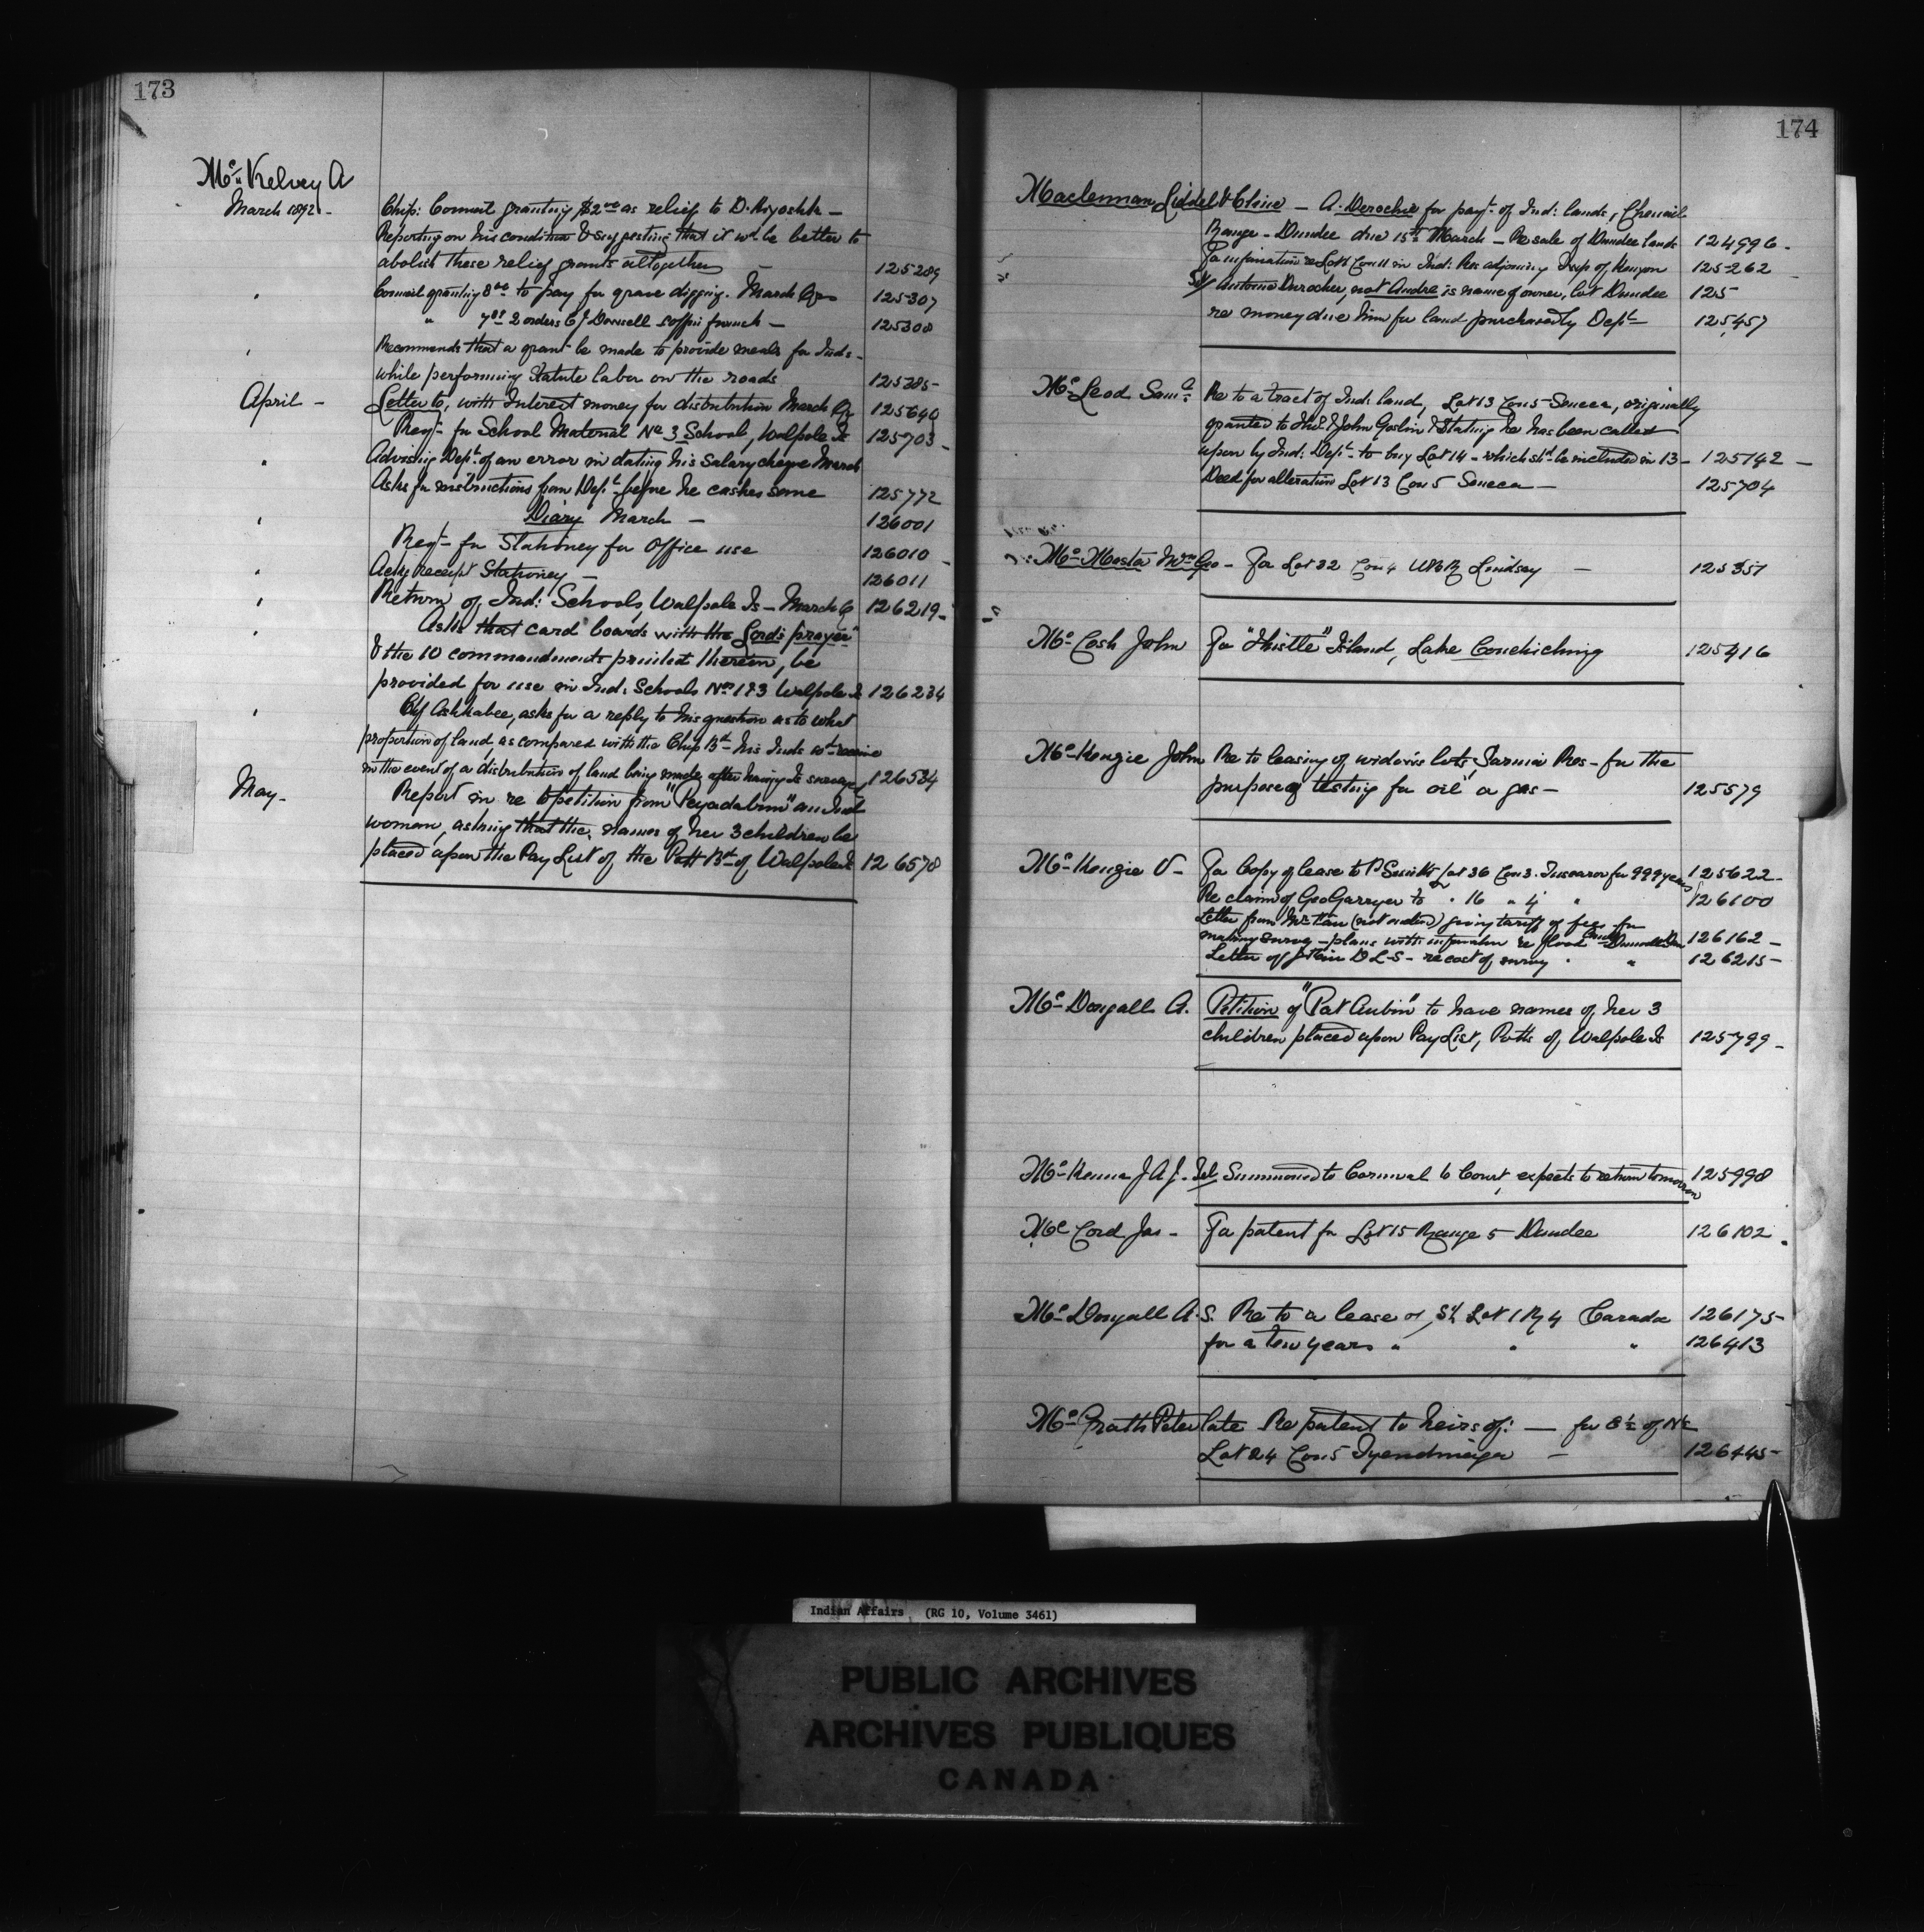 173
Mc Kelvey A
March 1892 -
Chip: Council granting $2.00 as relief to D. Kiyoshk -
Reporting on his condition & suggesting that it wd be better to
abolish these relief grants altogether - 125289
" Council granting 8.00 to pay for grave digging. March Qr 125307
" 2 orders C J Donnell coffin 125308
' Recommends that a grant be made to provide meals for Inds -
while performing Statute labor on the roads 125385-
April - Letter to, with Interest money for distribution March Qr 125640
Reqt- for School Material No 3 School, Walpole Is 125703 -
" Advising Dept. of an error in dating his Salary cheque March
Asks for instructions from Dept before he cashes same 125772
' Diary March - 126001
Reqt- for Stationey for Office use 126010 -
" Ackg receipt Stationey - 126011
' Return of Ind: Schools, Walpole Is - March Q 126219-
' Asks that card boards with the Lord's prayer
& the 10 commandments printed therein, be
provided for use in Ind: Schools Nos 1&3 Walpole Is 126234
' Cf Ashkabee, asks for a reply to his question as to what
proportion of land, as compared with the Chip Bd- his Inds wd receive
in the event of a distribution of land being made after having Is surveyed 126534
May - Report in re to petition from "Peyadabun" an Ind
woman, asking that the names of her 3 children be
placed upon the Pay List of the Pott Bd- of Walpole Is 126578
174
Maclennan Liddel & Cline - A. Derochie for payt- of Ind: lands, Chenail
Range - Dundee due 15th March - Re sale of Dundee lands 124996 -
For information re Lot 6 Con 11 in Ind: Res adjoining Twp of Kenyon 125262
Antoine Durocher, not Andre is name of owner, Lot Dundee 125
re money due him for land purchased by Dept- 125457
Mc Leod Saml Re to a tract of Ind: land, Lot 13 Con 5 Seneca, originally
granted to Thos & John Goslin & Stating he has been called
upon by Ind: Dept- to buy Lot 14 - which shd be included in 13 - 125142 -
Deed for alteration Lot 13 Con 5 Seneca - 125704
Mrs Geo - For Lot 22 Con 4 Lindsay - 125351
Mc Cosh John For "Thistle" Island, Lake Couchiching 125416
Mc Kenzie John Re to leasing of widow's lots, Sarnia Res - for the
purpose of testing for oil or gas - 125579
Mc Kenzie For Copy of lease to P Smith Lot 36 Con 3. Tuscarora for 999 years 125622 -
Re claim of Geo Garryer to " 16 " 4 " 126100
Letter from Mr (not ) giving tariff of fees for
making survey - plans with information re flood 126162 -
Letter of D L S - re cost of survey " " 126215-
Mc Dougall A. Petition of "Pat Aubin" to have names of her 3
children placed upon Pay List, Potts of Walpole Is 125799 -
Mc Kenna J A J. Tel Summoned to Cornwall to Court, expects to return tomorrow 125998
Mc Cord Jas - For patent for Lot 15 Range 5 Dundee 126102 .
Mc Dougall A. S. Re to a lease of, S½ Lot 1 R 4 Caradoc 126175-
for a few years " " " 126413
Mc Grath Peter late Re patent to heirs of: - for E½ of N½
Lot 24 Con 5 Tyendinaga - 126445-
Indian Affairs (RG 10, Volume 3461)
PUBLIC ARCHIVES
ARCHIVES PUBLIQUES
CANADA